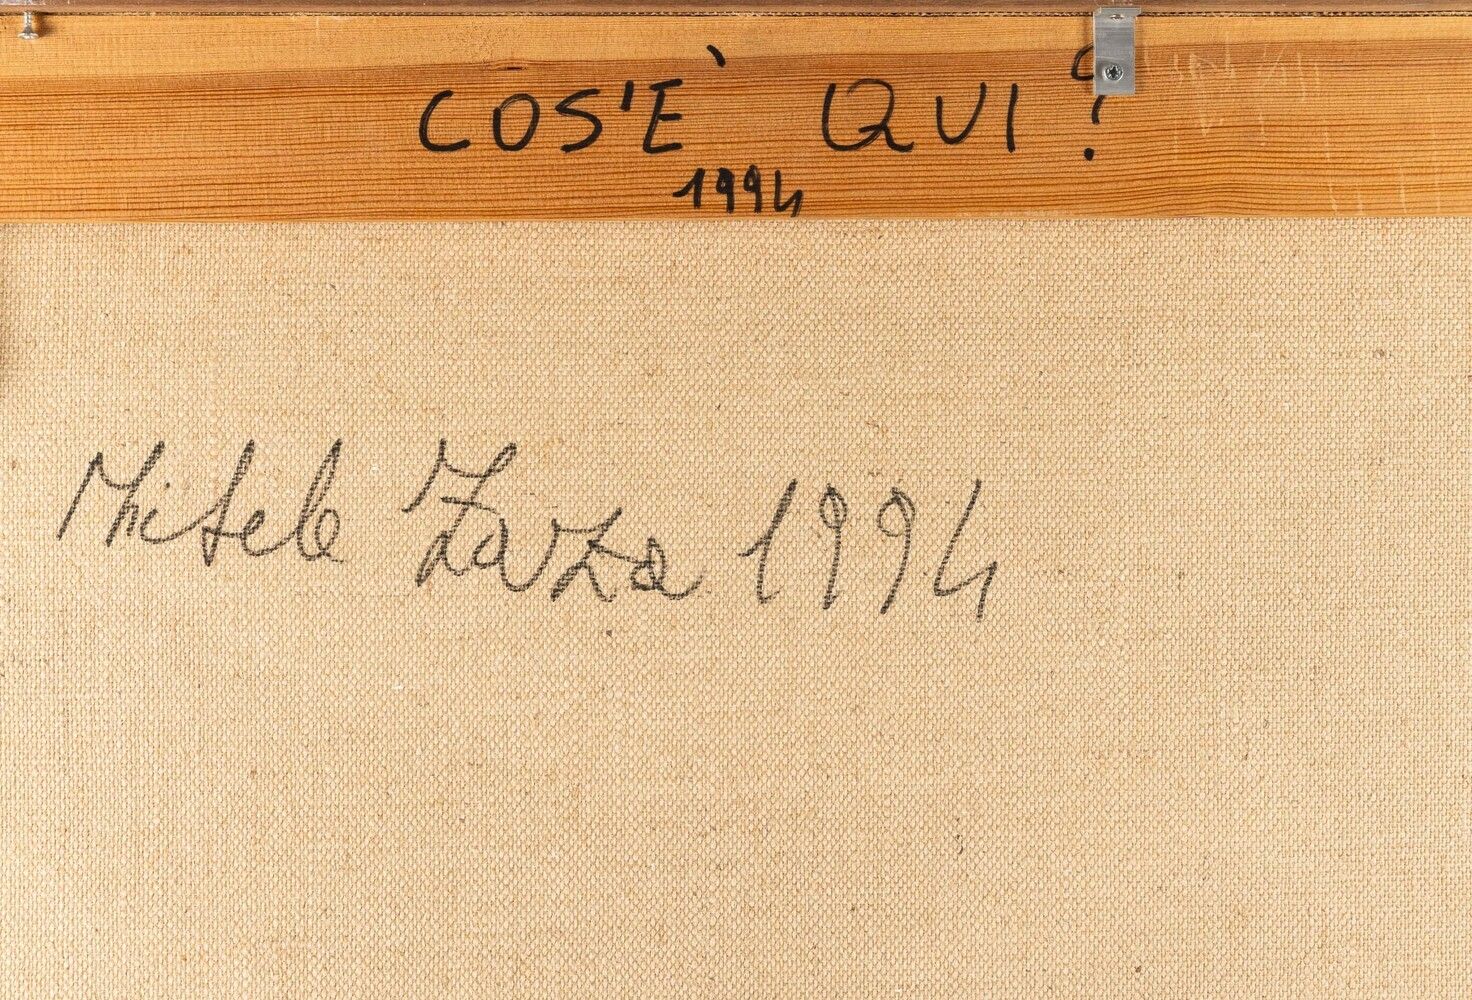 COS'È QUI?
1994
Michele Zaza 1994